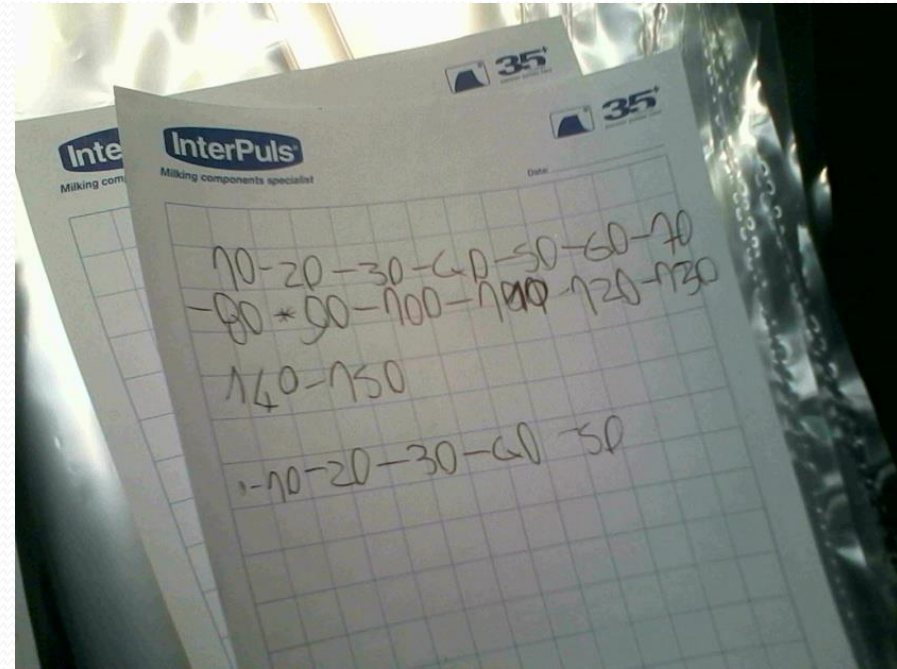 35+
Inte
Milking com
35+
InterPuls®
Milking components specialist
Date
10-20-30-40-50-60-70
-80*90-100-110-120-130
140-150
-10-20-30-40 50